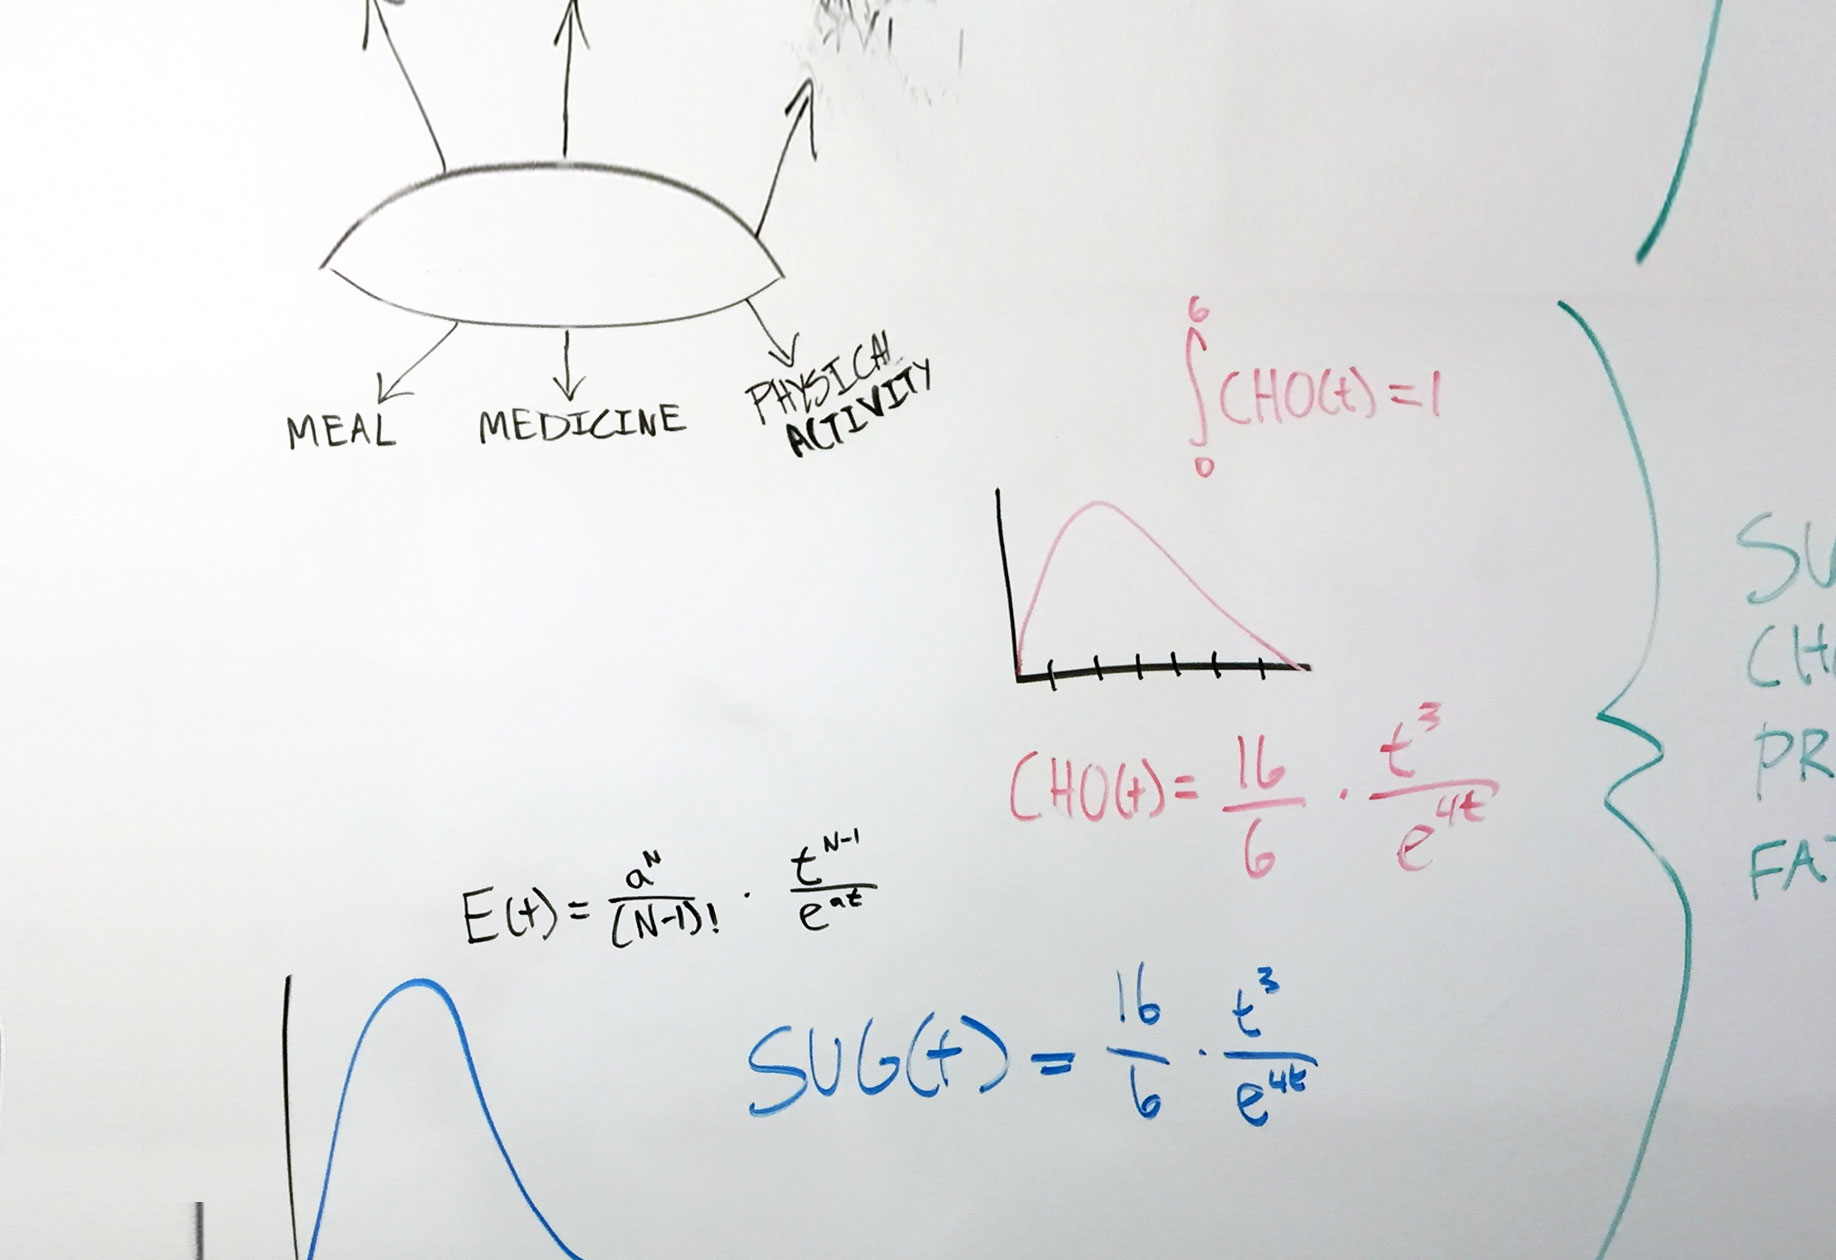 MEAL
MEDICINE
PHYSICAL
ACTIVITY
6
∫ CHO(t) = 1
0
CHO(t) = 16/6 · t³/e^4t
E(t) = a^N/(N-1)! · t^N-1/e^at
SUG(t) = 16/6 · t³/e^4t
SU
CH
PR
FA